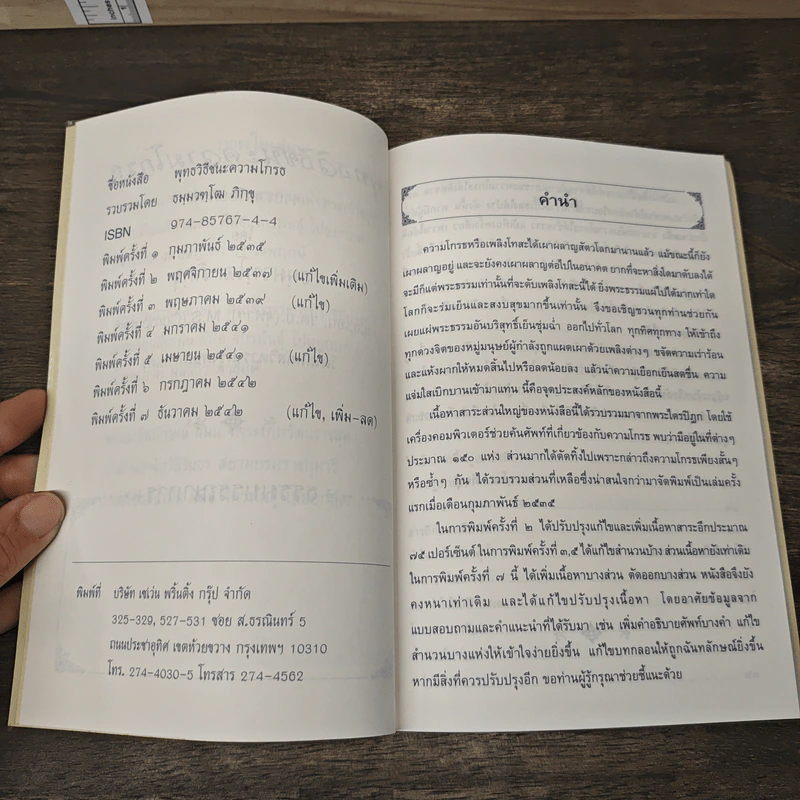 ชื่อหนังสือ พุทธวิธีชนะความโกรธ
รวบรวมโดย ธมฺมวฑฺโฒ ภิกฺขุ
ISBN 974-85767-4-4
พิมพ์ครั้งที่ ๑ กุมภาพันธ์ ๒๕๓๕
พิมพ์ครั้งที่ ๒ พฤศจิกายน ๒๕๓๗ (แก้ไขเพิ่มเติม)
พิมพ์ครั้งที่ ๓ พฤษภาคม ๒๕๓๙ (แก้ไข)
พิมพ์ครั้งที่ ๔ มกราคม ๒๕๔๑
พิมพ์ครั้งที่ ๕ เมษายน ๒๕๔๑ (แก้ไข)
พิมพ์ครั้งที่ ๖ กรกฎาคม ๒๕๔๒
พิมพ์ครั้งที่ ๗ ธันวาคม ๒๕๔๒ (แก้ไข, เพิ่ม-ลด)
พิมพ์ที่ บริษัท เซเว่น พริ้นติ้ง กรุ๊ป จำกัด
325-329, 527-531 ซอย ส.ธรณินทร์ 5
ถนนประชาอุทิศ เขตห้วยขวาง กรุงเทพฯ 10310
โทร. 274-4030-5 โทรสาร 274-4562
คำนำ
ความโกรธหรือเพลิงโทสะได้เผาผลาญสัตว์โลกมานานแล้ว แม้ขณะนี้ก็ยัง
เผาผลาญอยู่ และจะยังคงเผาผลาญต่อไปในอนาคต ยากที่จะหาสิ่งใดมาดับลงได้
จะมีก็แต่พระธรรมเท่านั้นที่จะดับเพลิงโทสะนี้ได้ ยิ่งพระธรรมแผ่ไปได้มากเท่าใด
โลกก็จะร่มเย็นและสงบสุขมากขึ้นเท่านั้น จึงขอเชิญชวนทุกท่านช่วยกัน
เผยแผ่พระธรรมอันบริสุทธิ์เย็นชุ่มฉ่ำ ออกไปทั่วโลก ทุกทิศทุกทาง ให้เข้าถึง
ทุกดวงจิตของหมู่มนุษย์ผู้กำลังถูกแผดเผาด้วยเพลิงต่างๆ ขจัดความเร่าร้อน
และแห้งผากให้หมดสิ้นไปหรือลดน้อยลง แล้วนำความเยือกเย็นสดชื่น ความ
แจ่มใสเบิกบานเข้ามาแทน นี้คือจุดประสงค์หลักของหนังสือนี้
เนื้อหาสาระส่วนใหญ่ของหนังสือนี้ได้รวบรวมมาจากพระไตรปิฎก โดยใช้
เครื่องคอมพิวเตอร์ช่วยค้นศัพท์ที่เกี่ยวข้องกับความโกรธ พบว่ามีอยู่ในที่ต่างๆ
ประมาณ ๑๕๐ แห่ง ส่วนมากได้ตัดทิ้งไปเพราะกล่าวถึงความโกรธเพียงสั้นๆ
หรือซ้ำๆ กัน ได้รวบรวมส่วนที่เหลือซึ่งน่าสนใจกว่ามาจัดพิมพ์เป็นเล่มครั้ง
แรกเมื่อเดือนกุมภาพันธ์ ๒๕๓๕
ในการพิมพ์ครั้งที่ ๒ ได้ปรับปรุงแก้ไขและเพิ่มเนื้อหาสาระอีกประมาณ
๗๕ เปอร์เซ็นต์ ในการพิมพ์ครั้งที่ ๓,๕ ได้แก้ไขสำนวนบ้าง ส่วนเนื้อหายังเท่าเดิม
ในการพิมพ์ครั้งที่ ๗ นี้ ได้เพิ่มเนื้อหาบางส่วน ตัดออกบางส่วน หนังสือจึงยัง
คงหนาเท่าเดิม และได้แก้ไขปรับปรุงเนื้อหา โดยอาศัยข้อมูลจาก
แบบสอบถามและคำแนะนำที่ได้รับมา เช่น เพิ่มคำอธิบายศัพท์บางคำ แก้ไข
สำนวนบางแห่งให้เข้าใจง่ายยิ่งขึ้น แก้ไขบทกลอนให้ถูกฉันทลักษณ์ยิ่งขึ้น
หากมีสิ่งที่ควรปรับปรุงอีก ขอท่านผู้รู้กรุณาช่วยชี้แนะด้วย